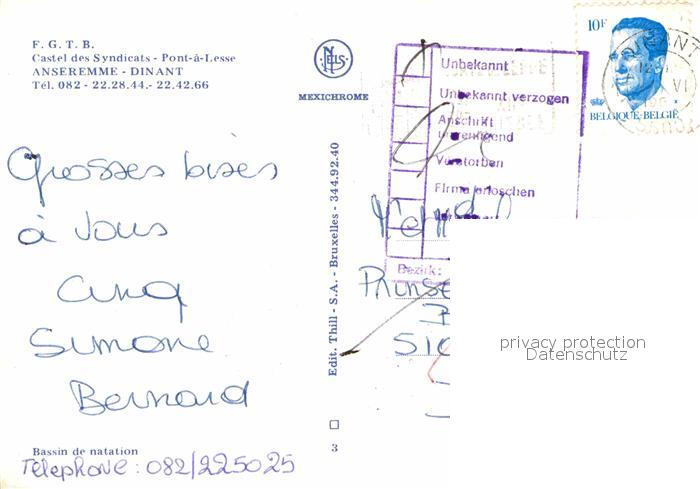 F. G. T. B.
Castel des Syndicats - Pont-à-Lesse
ANSEREMME - DINANT
Tél. 082 - 22.28.44.- 22.42.66
NELS
MEXICHROME
Grosses bises
à vous
cinq
Simone
Bernard
Bassin de natation
Telephone : 082/225025
Edit. Thill - S.A. - Bruxelles - 344.92.40
3
Unbekannt
Unbekannt verzogen
Anschrift
ungenügend
Verstorben
Firma erloschen
Bezirk:
10F
BELGIQUE-BELGIË
DINANT
Prinse
510
privacy protection
Datenschutz